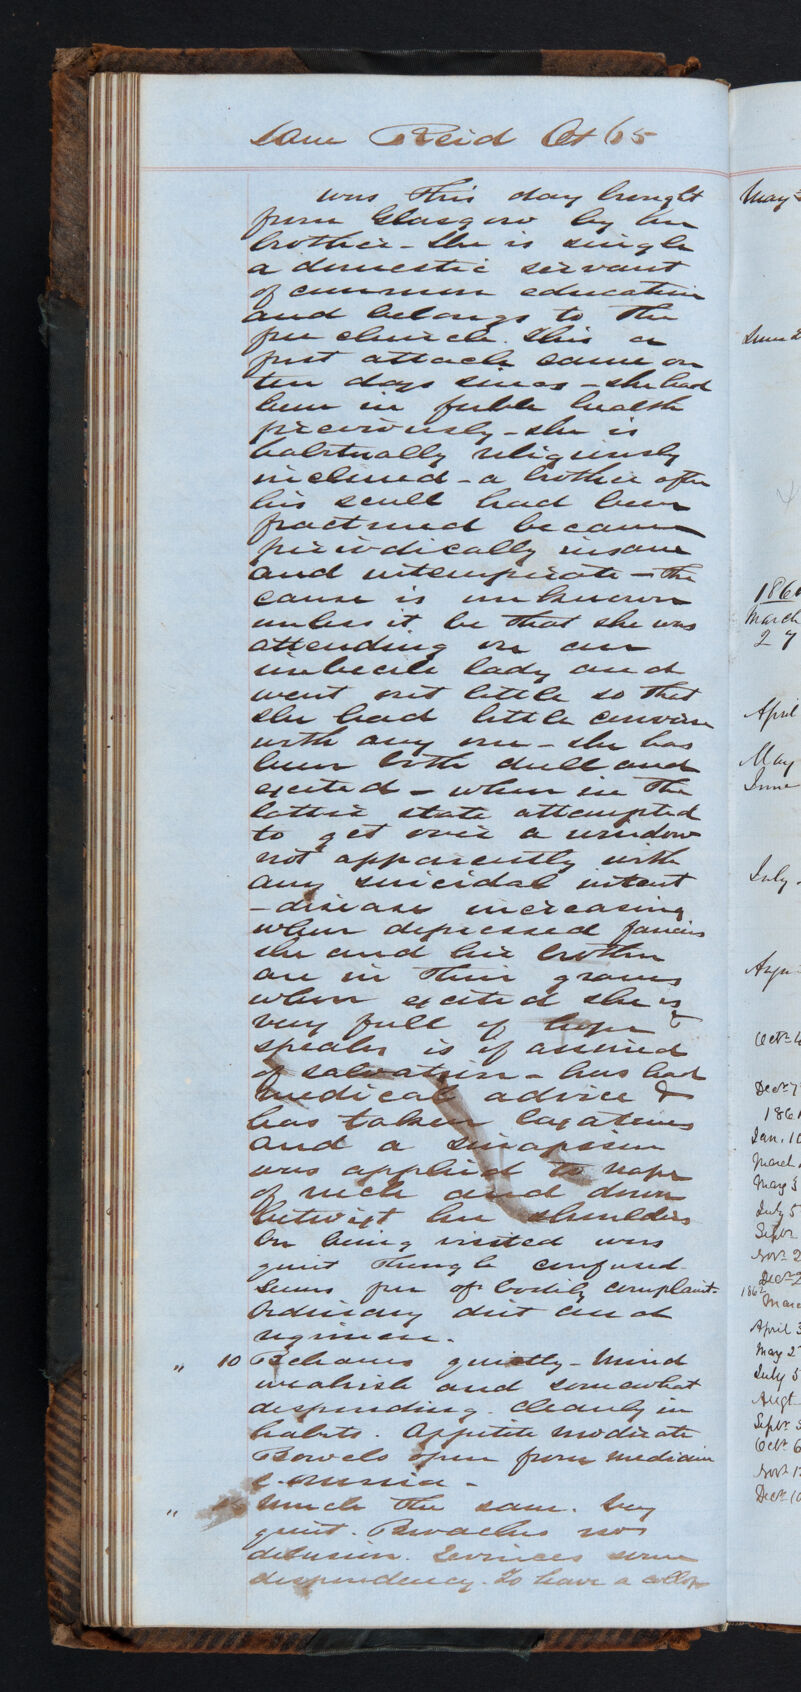 Jane Reid Æt 65
was this day brought
from Glasgow by her
brother - She is single
a domestic servant
of common education
and belongs to the
free church. This a
first attack came on
ten days since - she had
been in feeble health
previously - she is
habitually religiously
inclined - a brother after
his scull had been
fractured became
periodically insane
and intemperate - the
cause is unknown
unless it be that she was
attending on an
imbecile lady and
went out little so that
she had little converse
with any one - she has
been both dull and
excited - when in the
latter state attempted
to get over a window
not apparently with
any suicidal intent
- disease increasing
when depressed fancies
she and her brother
are in their graves
when excited she is
very full of hope &
speaks as if assured
of salvation - has had
medical advice &
has taken laxatives
and a sinapism
was applied to nape
of neck and down
betwixt her shoulders
On being visited was
quiet though confused.
Seems free of bodily complaint.
Ordinary diet and
regimen.
" 10 Behaves quietly - Mind
weakish and somewhat
desponding. Cleanly in
habits. Appetite moderate
Bowels open from medicine
& enema -
" Much the same. Very
quiet. Broaches no
delusion. Evinces some
despondency. To have a
May
June
1860
March
27
April
May
June
July
Octr
Decr 7
1861
Jan. 10
March
May 3
July 5
Septr
Novr 2
Decr 2
1862
March
April 3
May 2
July 5
Augt
Septr 5
Octr 6
Novr 1
Decr 10